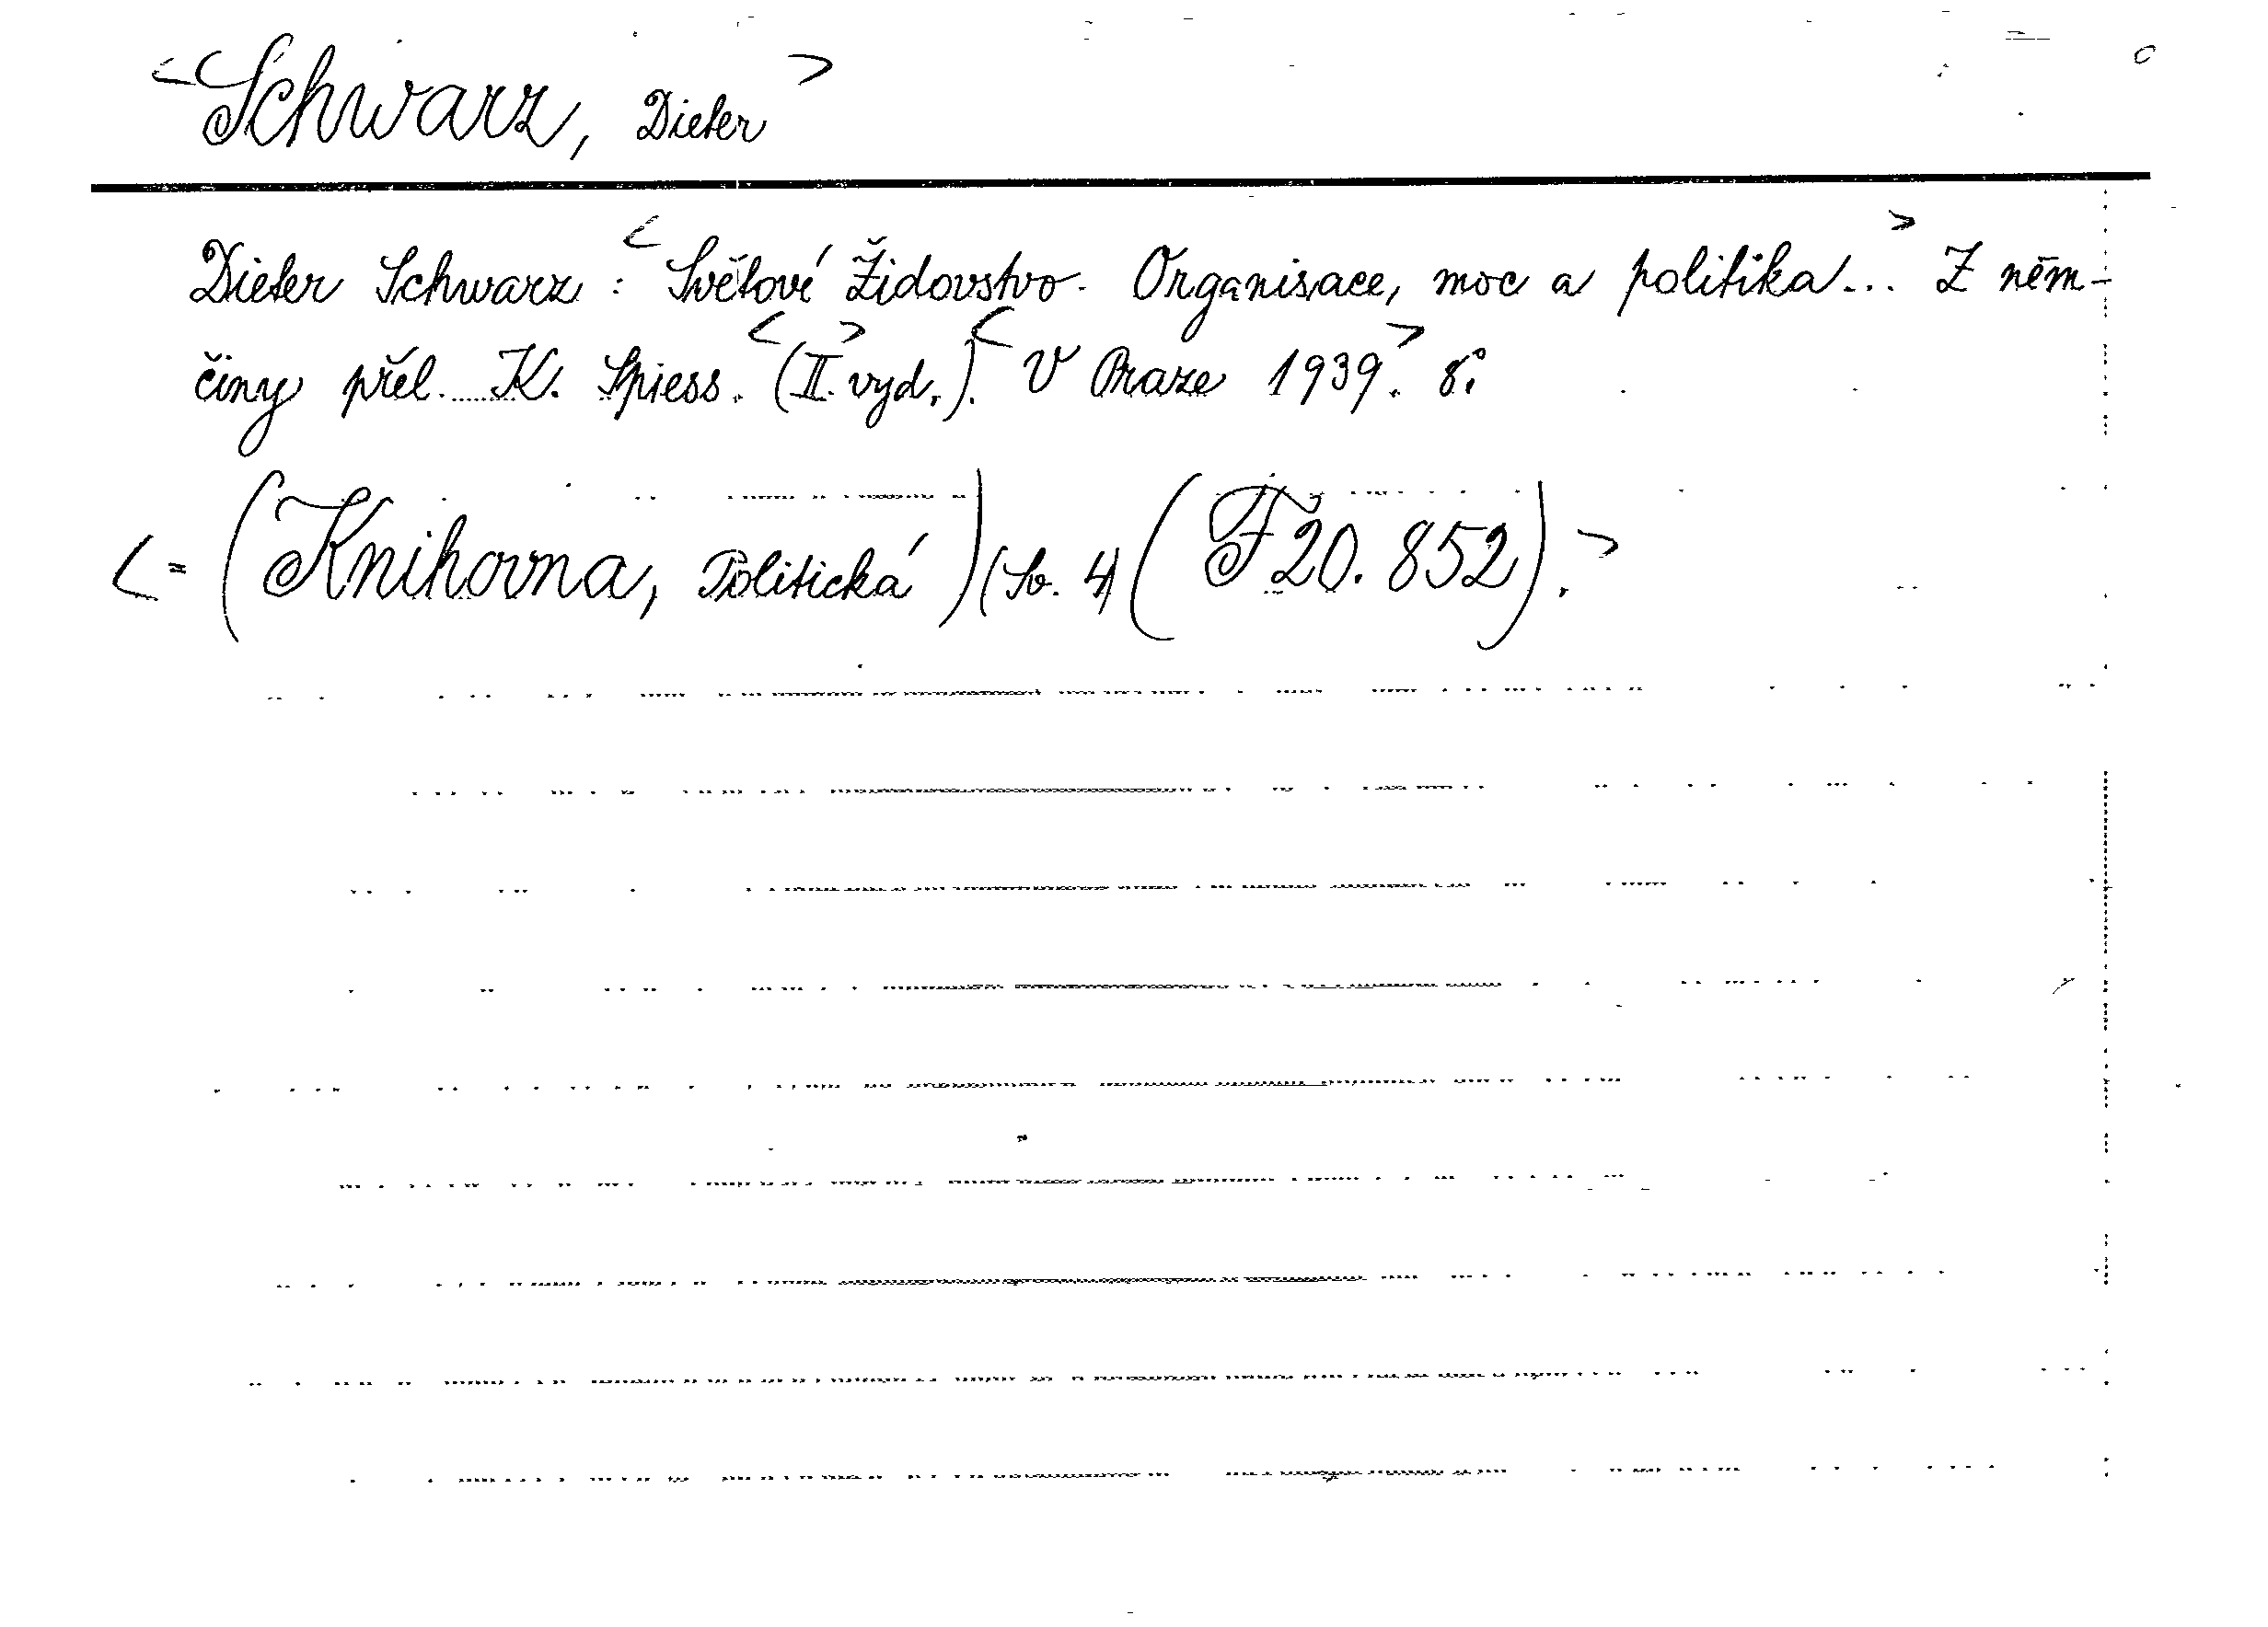 <Schwarz, Dieter>
Dieter Schwarz: <Světové Židovstvo. Organisace, moc a politika...> Z něm-
činy přel. K. Spiess. <(II.> vyd.). <V Praze 1939.> 8°.
<= (Knihovna, Politická) (Sv. 4) (F 20.852).>